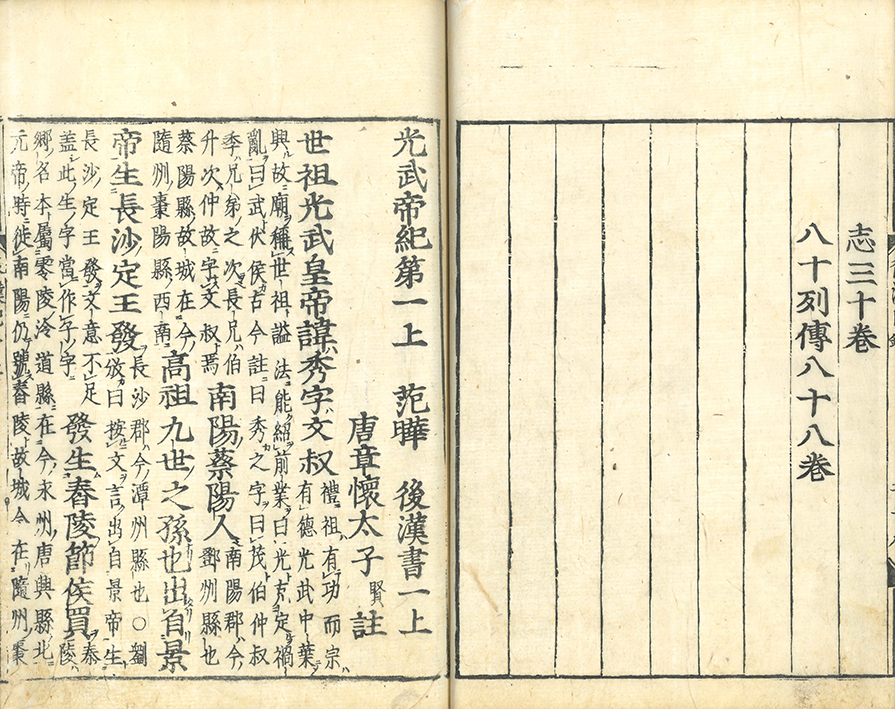 志三十卷
八十列傳八十八卷
光武帝紀第一上 范曄 後漢書一上
唐章懷太子賢註
世祖光武皇帝諱秀字文叔 禮祖有功而宗有德光武中葉
興故廟稱世祖謚法能紹前業曰光克定禍
亂曰武伏侯古今註曰秀之字曰茂伯仲叔
季兄弟之次長兄伯升次仲故字文叔焉 南陽蔡陽人 南陽郡今鄧州縣也
蔡陽縣故城在今隨州棗陽縣西南 高祖九世之孫也出自景
帝生長沙定王發 長沙郡今潭州縣也○劉攽曰按文言出自景帝生
長沙定王發文意不足蓋此生字當作子字 發生舂陵節侯買 舂陵
鄉名本屬零陵泠道縣在今永州唐興縣北
元帝時徙南陽仍號舂陵故城今在隨州棗